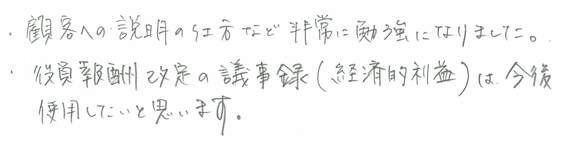 ・顧客への説明の仕方など非常に勉強になりました。
・役員報酬改定の議事録(経済的利益)は、今後
使用したいと思います。